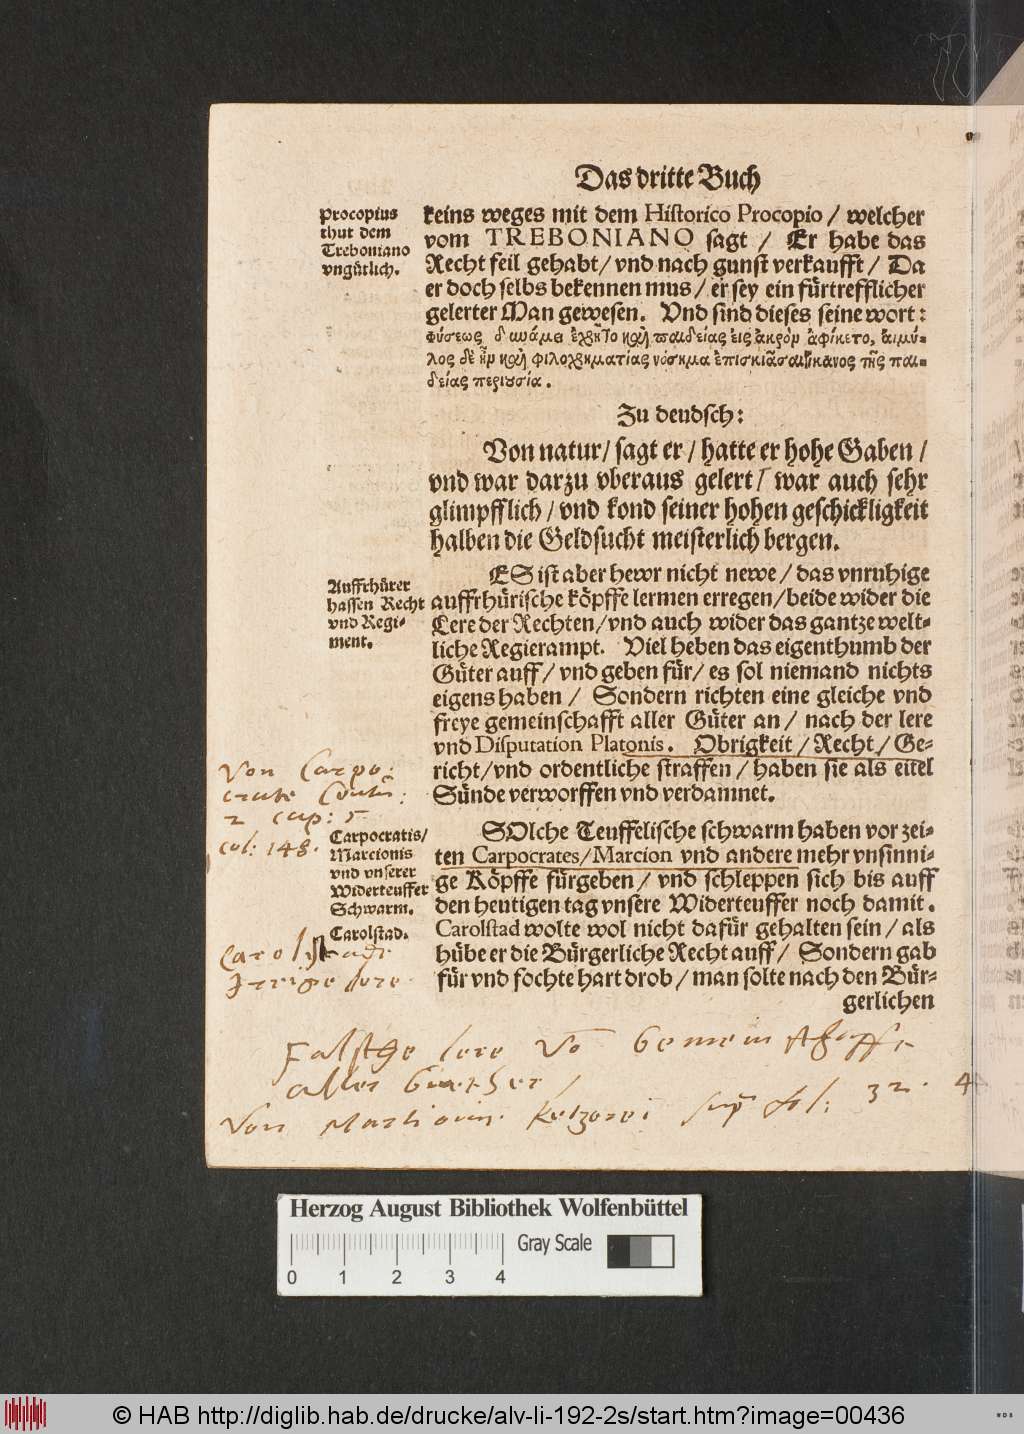 Das dritte Buch
Procopius
thut dem
Treboniano
vngütlich.
keins weges mit dem Historico Procopio / welcher
vom TREBONIANO sagt / Er habe das
Recht feil gehabt / vnd nach gunst verkaufft / Da
er doch selbs bekennen mus / er sey ein fürtrefflicher
gelerter Man gewesen. Vnd sind dieses seine wort:
φύσεως παιδείας εἰς ἄκρον ἀφίκετο, αἱμύ-
λος δὲ ἦν καὶ φιλοχρηματίας νόσημα ἐπισκιᾶσαι ἱκανος τῆς παι-
δείας περιουσία.
Zu deudsch:
Von natur / sagt er / hatte er hohe Gaben /
vnd war darzu vberaus gelert / war auch sehr
glimpfflich / vnd kond seiner hohen geschickligkeit
halben die Geldsucht meisterlich bergen.
Auffrhürer
hassen Recht
vnd Regi-
ment.
ES ist aber hewr nicht newe / das vnruhige
auffrhürische köpffe lermen erregen / beide wider die
Lere der Rechten / vnd auch wider das gantze welt-
liche Regierampt. Viel heben das eigenthumb der
Güter auff / vnd geben für / es sol niemand nichts
eigens haben / Sondern richten eine gleiche vnd
freye gemeinschafft aller Güter an / nach der lere
vnd Disputation Platonis. Obrigkeit / Recht / Ge-
richt / vnd ordentliche straffen / haben sie als eitel
Sünde verworffen vnd verdamnet.
Von Carpo:
crate
2 cap: 5
col: 148.
Carpocratis/
Marcionis
vnd vnserer
Widerteuffer
Schwarm.
Carolstad.
SOlche Teuffelische schwarm haben vor zei-
ten Carpocrates / Marcion vnd andere mehr vnsinni-
ge Köpffe fürgeben / vnd schleppen sich bis auff
den heutigen tag vnsere Widerteuffer noch damit.
Carolstad wolte wol nicht dafür gehalten sein / als
hübe er die Bürgerliche Recht auff / Sondern gab
für vnd fochte hart drob / man solte nach den Bür-
gerlichen
Irrige lere
Falsche lere vō Gemeinschafft
aller Guether /
Von Ketzerei fol: 32.
Herzog August Bibliothek Wolfenbüttel
Gray Scale
0 1 2 3 4
© HAB http://diglib.hab.de/drucke/alv-li-192-2s/start.htm?image=00436